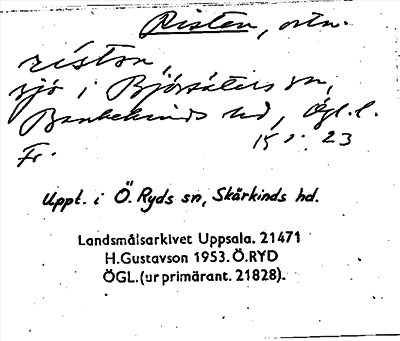 Risten, ortn.
ristɑn,
sjö i Björsäters sn,
Bankekinds hd, Ögl.l.
Fr. 15 s. 23
Uppt. i Ö. Ryds sn, Skärkinds hd.
Landsmålsarkivet Uppsala. 21471
H.Gustavson 1953. Ö.RYD
ÖGL.(ur primärant. 21828).